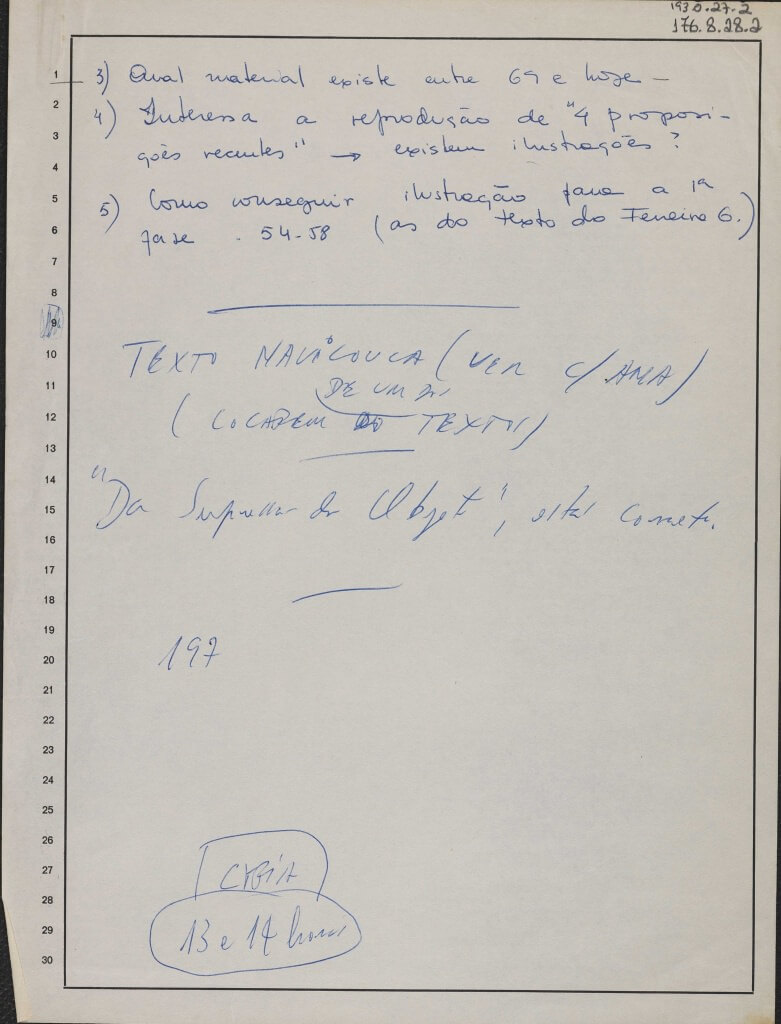 1930.27-2
176.8.28.2
1
2
3
4
5
6
7
8
9
10
11
12
13
14
15
16
17
18
19
20
21
22
23
24
25
26
27
28
29
30
3) Qual material existe entre 69 e hoje —
4) Interessa a reprodução de "4 proposi-
ções recentes" → existem ilustrações?
5) Como conseguir ilustração para a 1ª
fase . 54-58 (as do texto do Ferreira G.)
TEXTO NAVILOUCA (VER C/ ANA)
DE UM
( COLAGEM TEXTOS)
"Da Supressão do Objeto", está correto.
197
13 e 14 horas